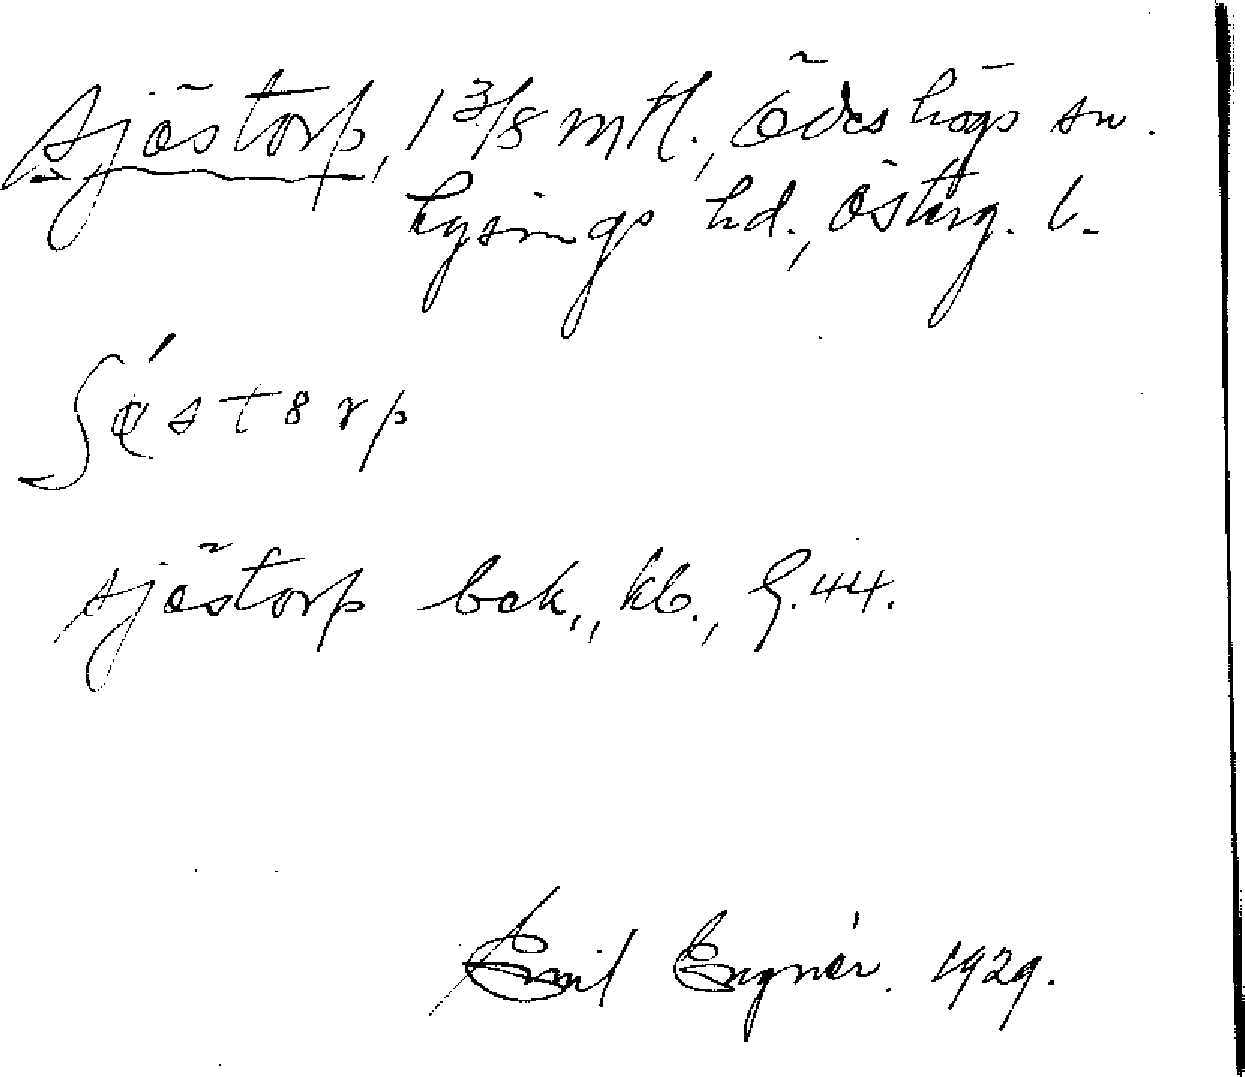 Sjöstorp, 1 3/8 mtl., Ödeshögs sn.
Lysings hd., Österg. l.
sjöstorp bok., kb., G. 44.
Emil Engnér. 1929.